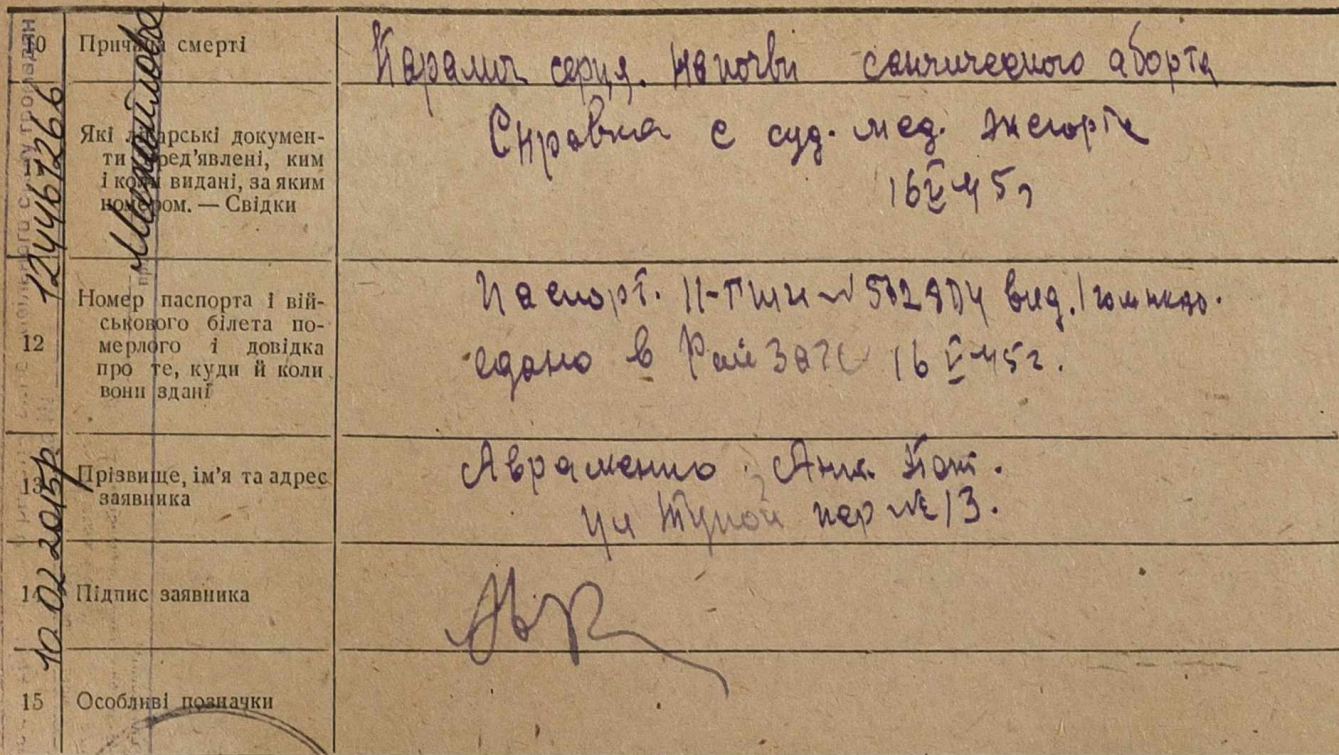 10 Причина смерті
Параліч серця. На почві септического аборта
11 Які лікарські документи пред'явлені, ким
і коли видані, за яким
номером. — Свідки
Справка с суд. мед. эксперта
16 V 45 г
12 Номер паспорта і військового білета померлого і довідка
про те, куди й коли
вони здані
Паспорт. II-ПШИ № 532804 вид. 1
сдано в РайЗАГС 16 V 45 г.
13 Прізвище, ім'я та адрес
заявника
Авраменко Анк.
ул Тупой пер № 13.
14 Підпис заявника
15 Особливі позначки
Михайлова
12446 1266
10 02 2015р